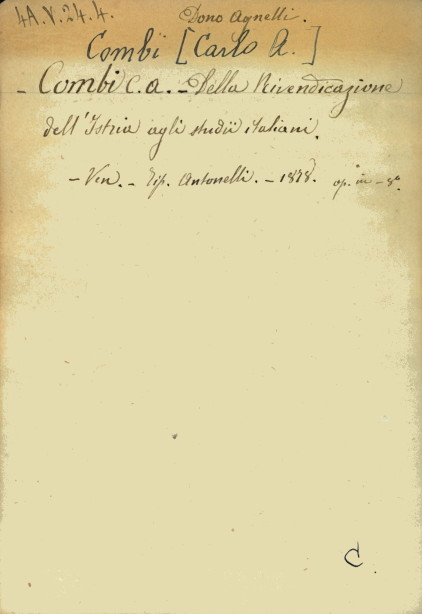 4A.V.24.4.
Dono Agnelli.
Combi [Carlo A.]
- Combi C. A. - Della Rivendicazione
dell'Istria agli studii italiani.
- Ven. - Tip. Antonelli. - 1878. op. in - 8°.
C